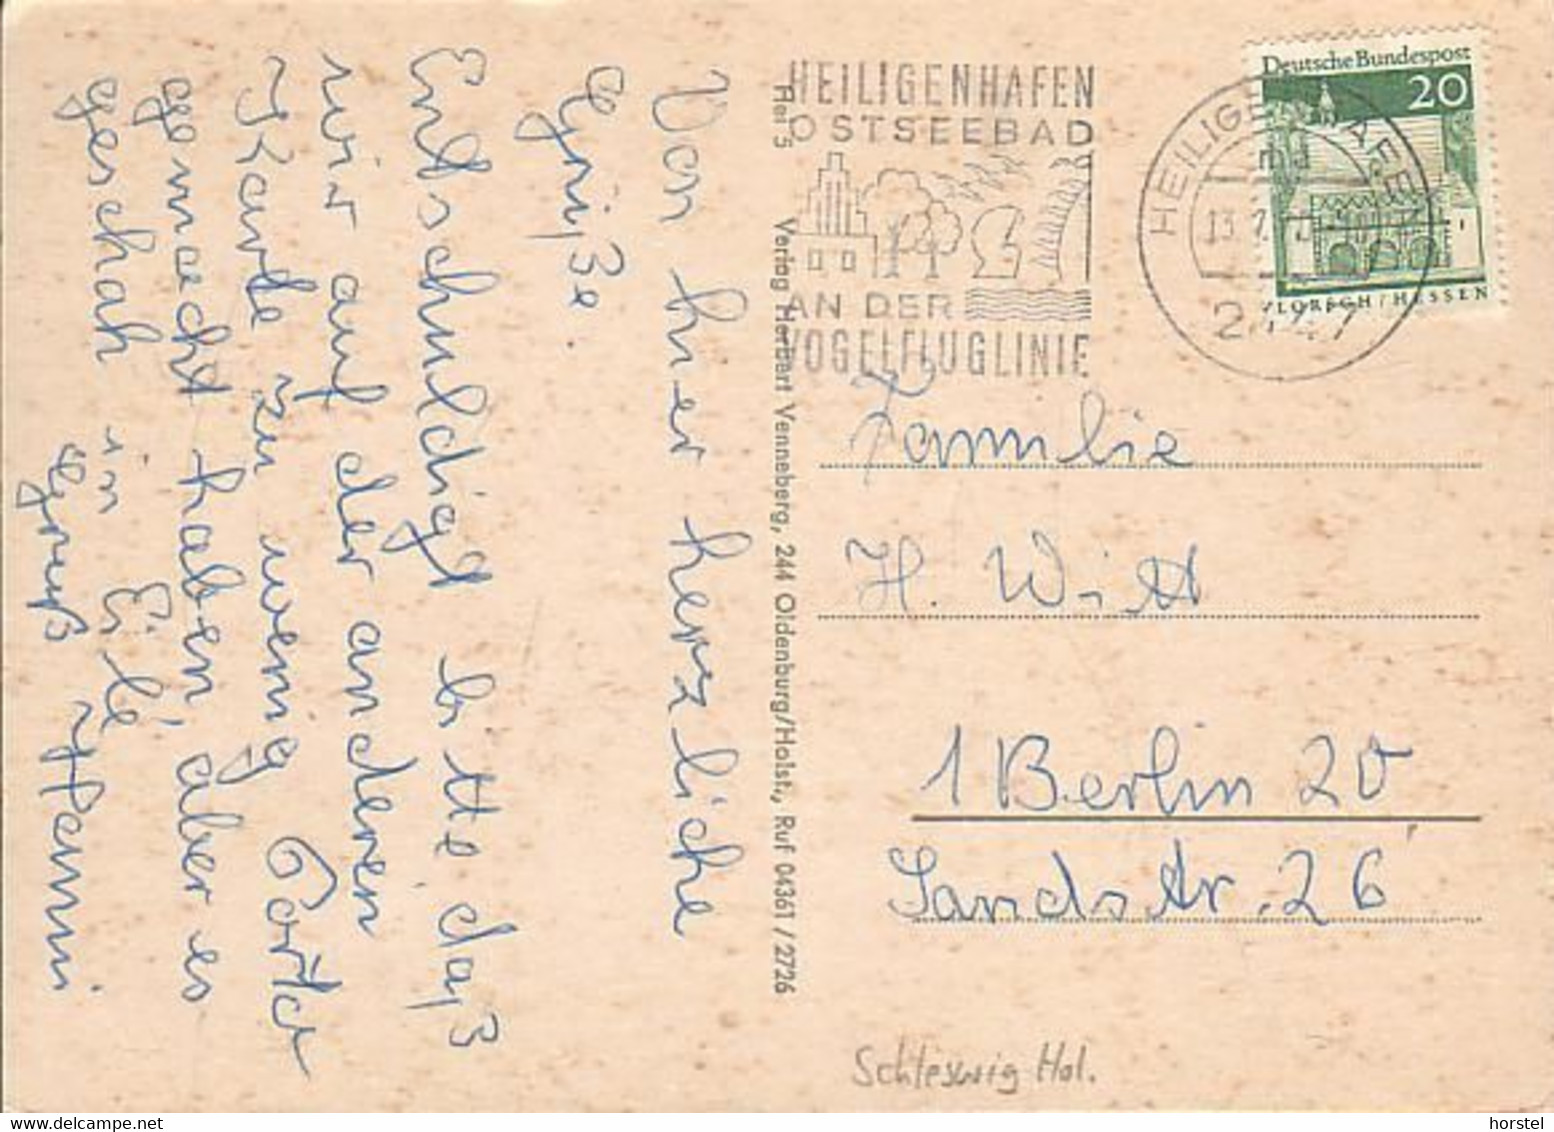 Von hier herzliche
Grüße.
Entschuldigt bitte, daß
wir auf der anderen
Karte zu wenig Porto
gemacht haben, aber es
geschah in Eile
Gruß Hanni
Hei 5
Verlag Herbert Venneberg, 244 Oldenburg/Holst., Ruf 04361 / 2726
HEILIGENHAFEN
OSTSEEBAD
AN DER
VOGELFLUGLINIE
HEILIGENHAFEN
Deutsche Bundespost
20
LORSCH/HESSEN
Familie
H. Witt
1 Berlin 20
Sandstr. 26
Schleswig Hol.
horstel